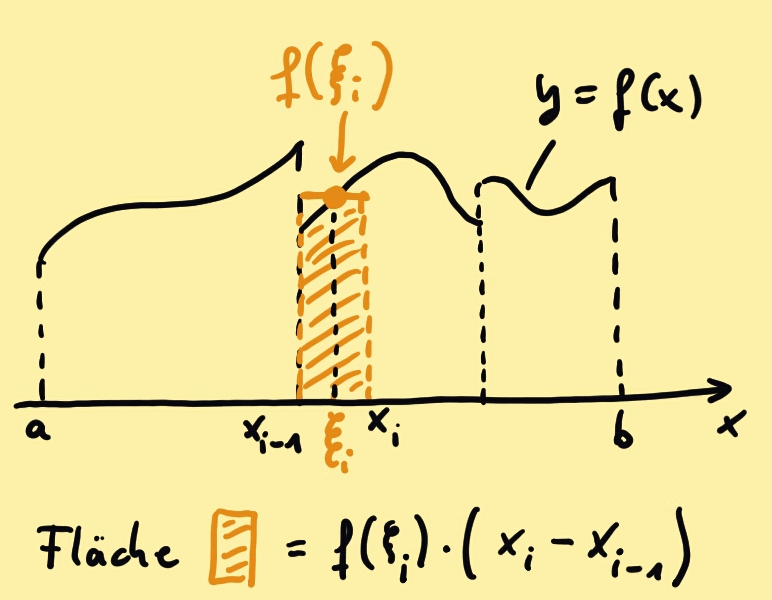 f(ξᵢ)
y = f(x)
a xᵢ₋₁ ξᵢ xᵢ b x
Fläche = f(ξᵢ) · ( xᵢ − xᵢ₋₁ )